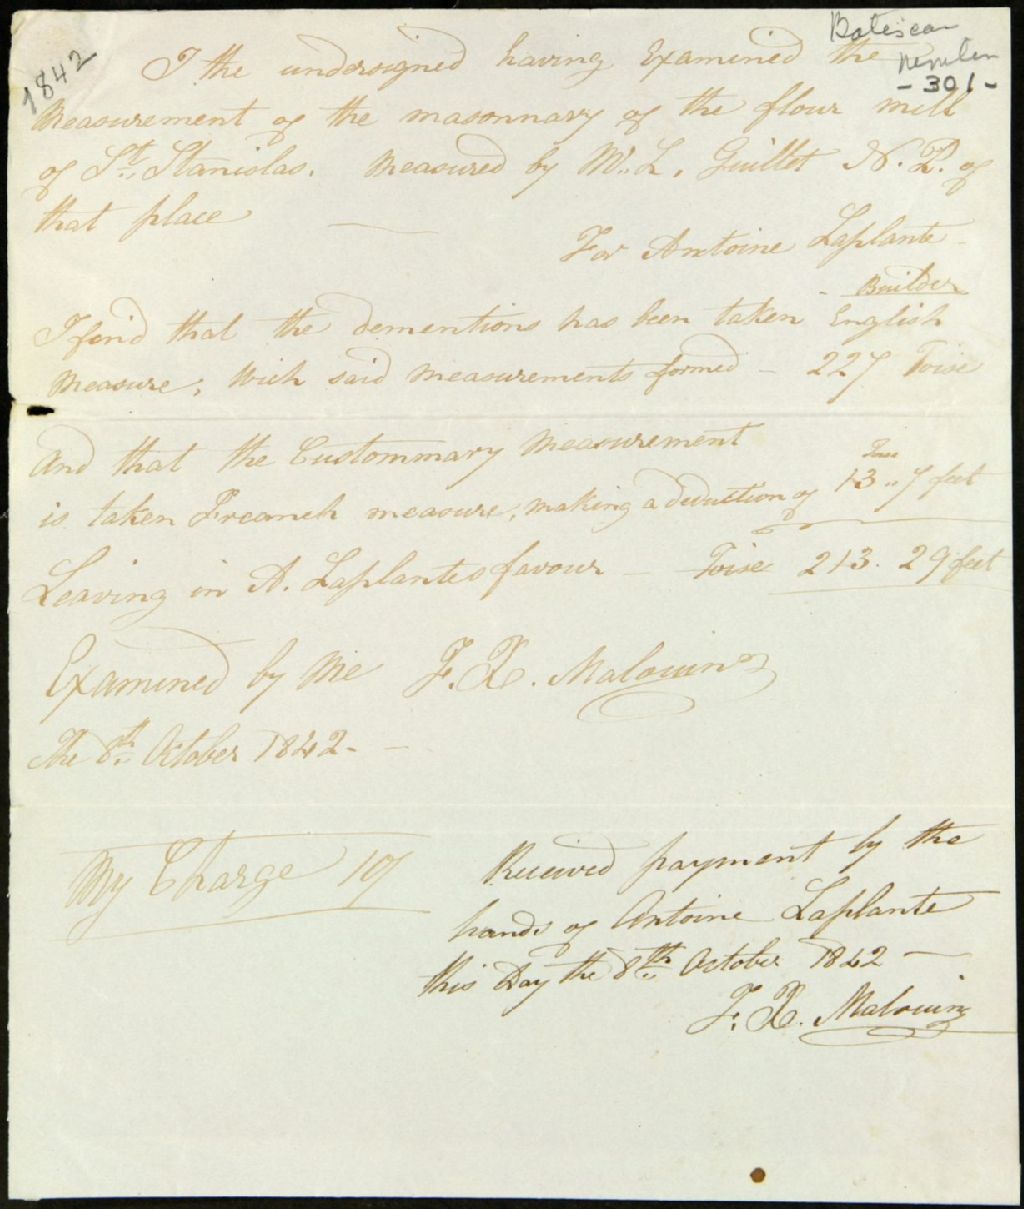 1842
Batiscan
- 301 -
I the undersigned having Examined the
Measurement of the masonnary of the flour mill
of St. Stanislas. Measured by Mr. L. Guillet N. P. of
that place
For Antoine Laplante
Builder
I find that the dementions has been taken English
Measure; Wich said Measurements formed - 227 Toise
And that the Custommary Measurement
Toise
is taken Freanch measure, making a deduction of 13 .. 7 feet
Leaving in A. Laplantes favour - Toise 213. 29 feet
Examined by Me F. X. Malouin
the 8th October 1842 -
My Charge 10/
Received payment by the
hands of Antoine Laplante
this Day the 8th October 1842 -
F. X. Malouin